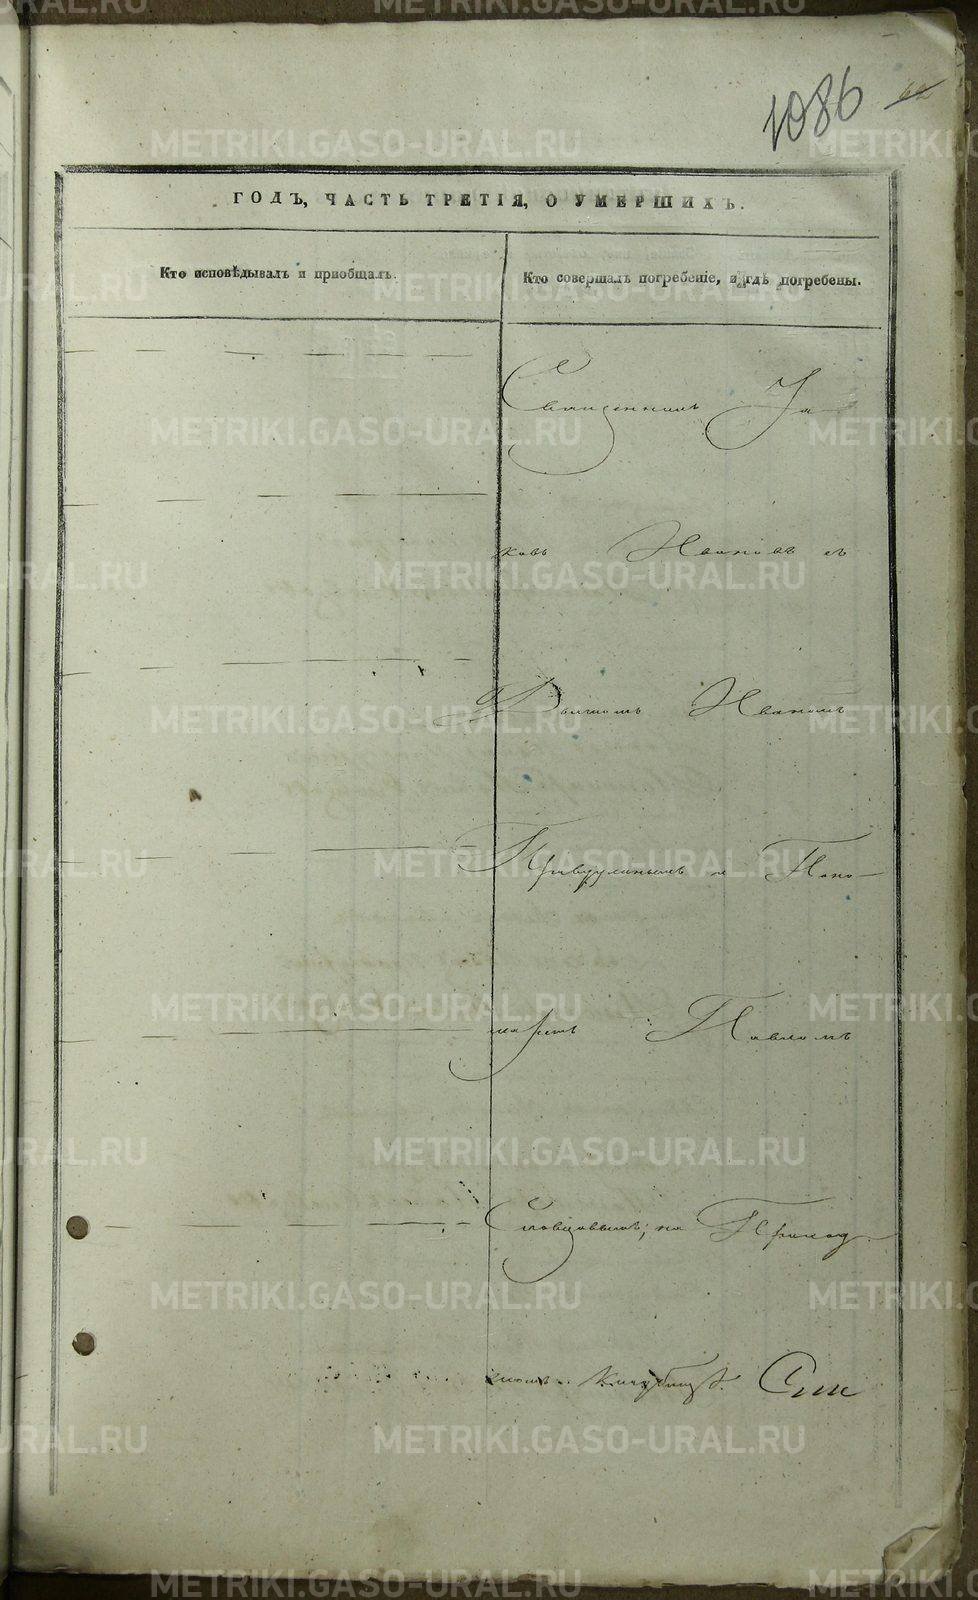 1086
ГОДЪ, ЧАСТЬ ТРЕТІЯ, О УМЕРШИХЪ.
Кто исповѣдывалъ и пріобщалъ.
Кто совершалъ погребеніе, и гдѣ погребены.
Священникъ Іа
ковъ Ивановъ съ
Дьячкомъ Иваномъ
Кривдулинымъ и Поно-
маремъ Павломъ
Словцовымъ; на Приход-
скомъ Кладбищѣ.
METRIKI.GASO-URAL.RU